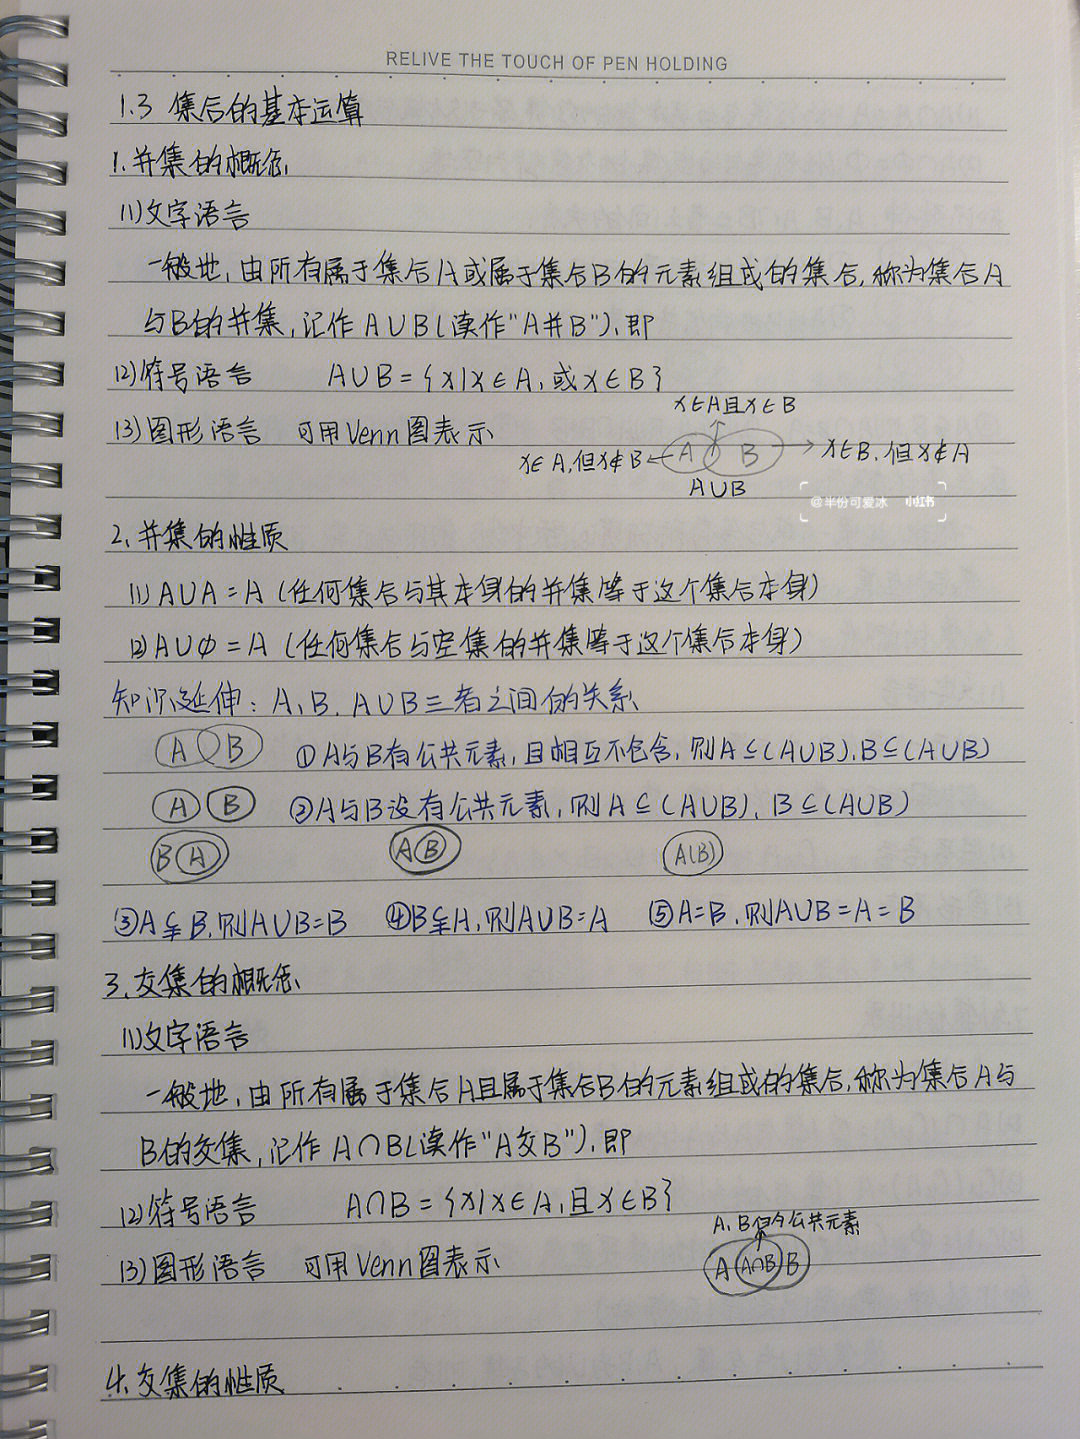 RELIVE THE TOUCH OF PEN HOLDING
1.3 集合的基本运算
1.并集的概念
(1)文字语言
一般地,由所有属于集合A或属于集合B的元素组成的集合,称为集合A
与B的并集,记作A∪B(读作"A并B"),即
(2)符号语言 A∪B={x|x∈A,或x∈B}
x∈A且x∈B
(3)图形语言 可用Venn图表示
x∈A,但x∉B A B x∈B,但x∉A
A∪B
@半份可爱冰 小红书
2.并集的性质
(1)A∪A=A(任何集合与其本身的并集等于这个集合本身)
(2)A∪∅=A(任何集合与空集的并集等于这个集合本身)
知识延伸:A、B、A∪B三者之间的关系
A B ①A与B有公共元素,且相互不包含,则A⊆(A∪B),B⊆(A∪B)
A B ②A与B没有公共元素,则A⊆(A∪B),B⊆(A∪B)
B A A B A(B)
③A⫋B,则A∪B=B ④B⫋A,则A∪B=A ⑤A=B,则A∪B=A=B
3.交集的概念
(1)文字语言
一般地,由所有属于集合A且属于集合B的元素组成的集合,称为集合A与
B的交集,记作A∩B(读作"A交B"),即
(2)符号语言 A∩B={x|x∈A,且x∈B}
A、B的公共元素
(3)图形语言 可用Venn图表示 A A∩B B
4.交集的性质